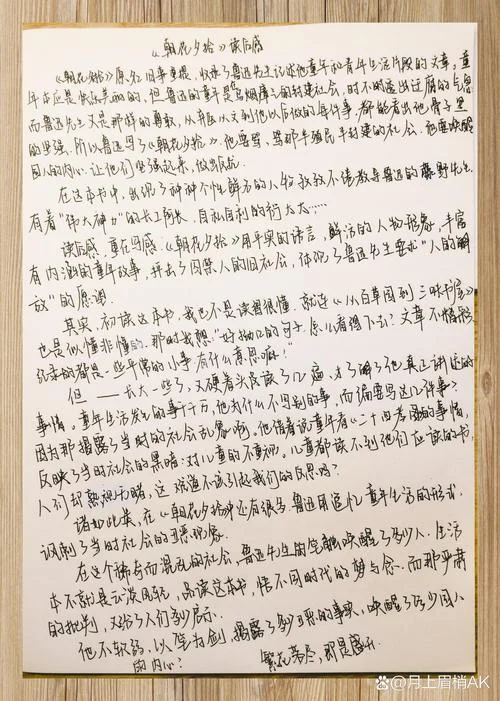 《朝花夕拾》读后感
《朝花夕拾》原名旧事重提，收录了鲁迅先生记述他童年和青年生活片段的文章，童
年本应是快乐美丽的，但鲁迅的童年是乌烟瘴气的封建社会，时不时透出迂腐的气息
而鲁迅先生又是那样的勇敢，从弃医从文到他以后做的每件事，都能看出他，骨子里
的坚强。所以鲁迅写了《朝花夕拾》，他要骂，骂那半殖民半封建的社会，他要唤醒
国人的内心，让他们坚强起来，做出反抗
在这本书中，出现了种种个性鲜明的人物孜孜不倦教导鲁迅的藤野先生
有着“伟大神力”的长妈妈、自私自利的衍太太……
读后感，重在写感，《朝花夕拾》用平实的语言，鲜活的人物形象，丰富
有内涵的童年故事，抨击了囚禁人的旧社会，体现了鲁迅先生要求“人的解
放”的愿望
其实，初读这本书，我也不是读得很懂，就连《从百草园到三味书屋》
也是似懂非懂的，那时我想“好拗口的句子，怎么看得下去！文章不精彩
纪录的都是一些平常的小事有什么意思嘛！”
但——长大一些了，又硬着头皮读了几遍，才了解了他真正讲述的
事情。童年生活发生的事千千万，他为什么不写别的事，而偏要写这几件事？
因为那揭露了当时的社会乱象啊。他借着说童年看《二十四孝图》的事情，
反映了当时社会的黑暗：对儿童的不重视。儿童都读不到他们应该读的书，
人们却熟视无睹，这难道不该引起我们的反思吗？
诸如此类，在《朝花夕拾》中还有很多，鲁迅用追忆童年生活的形式，
讽刺了当时社会的丑恶现象
在这个稀奇而混乱的社会，鲁迅先生的笔触唤醒了多少人，生活
本不就是云淡风轻，品读这本书，悟不同时代的梦与念，而那严肃
的批判，又给了人们多少启示
他不软弱，以笔为剑，揭露了多少丑恶的事实，唤醒了多少国人
的内心？
繁花落尽，即是盛开
百家号/月上眉梢AK